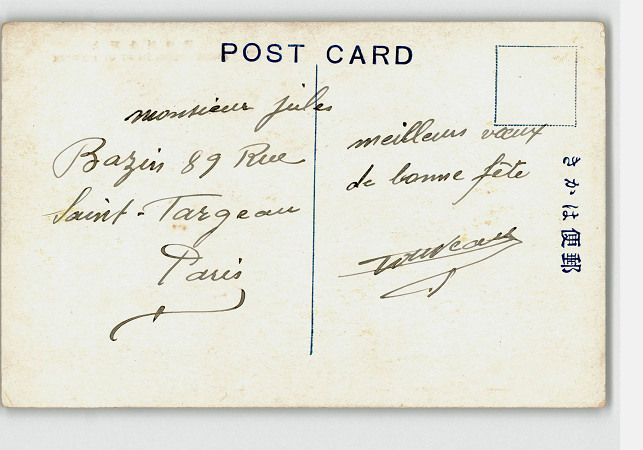 POST CARD
monsieur jules
Bazin 89 Rue
Saint-Targeau
Paris
meilleurs vœux
de bonne fête
きかは便郵